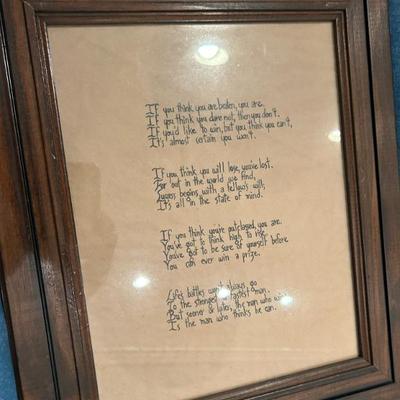 If you think you are beaten, you are.
If you think you dare not, then you don't.
If you'd like to win, but you think you can't,
It's almost certain you won't.
If you think you will lose, you've lost.
For out in the world we find,
Success begins with a fellow's will;
It's all in the state of mind.
If you think you're outclassed, you are.
You've got to think high to rise.
You've got to be sure of yourself before
You can ever win a prize.
Life's battles won't always go
To the stronger or fastest man,
But sooner or later, the man who wins
Is the man who thinks he can.